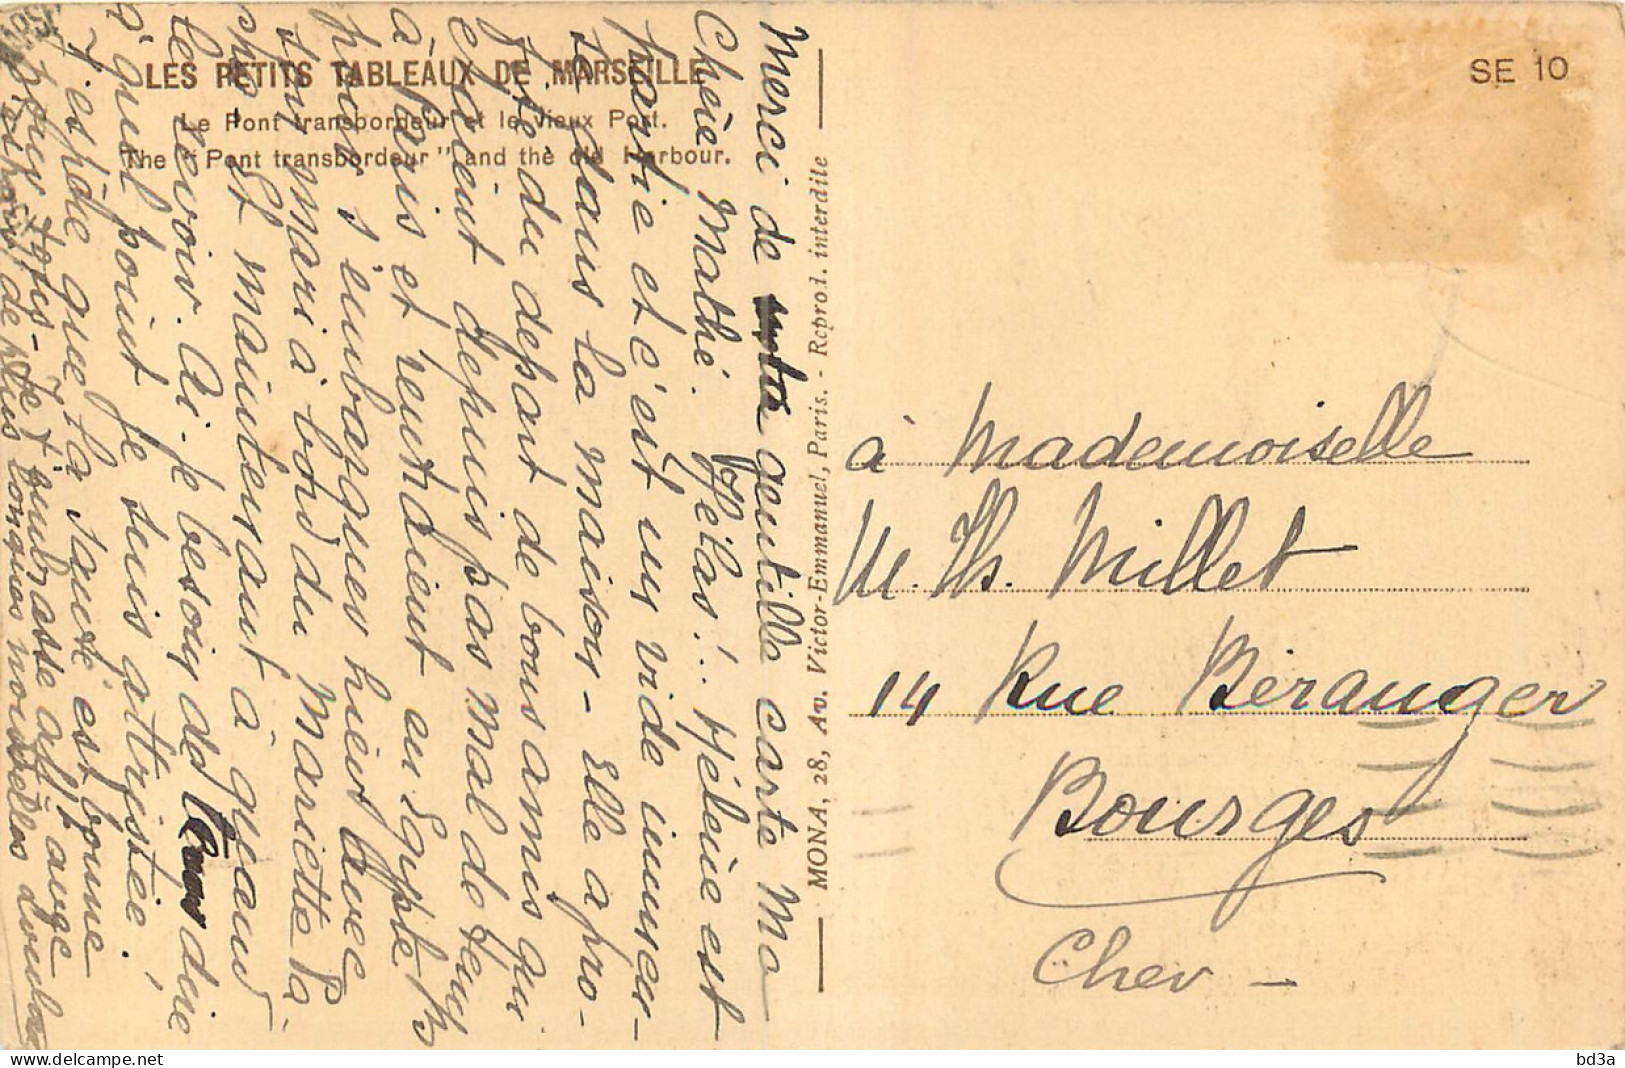 LES PETITS TABLEAUX DE MARSEILLE
Le Pont transbordeur et le Vieux Port.
The " Pont transbordeur " and the old Harbour.
SE 10
MONA, 28, Av. Victor-Emmanuel, Paris. - Reprol. interdite
Merci de gentille carte Ma
Chère Mathé. Hélas!.. Hélène est
partie et c'est un vide immen-
se dans la maison - Elle a pro-
fité du départ de bons amis qui
étaient depuis pas mal de temps
à Paris et rentraient en Egypte
pour s'embarquer hier avec
son mari à bord du Mariette Pa-
cha Et maintenant à quand
le revoir. Ai-je besoin de dire
à quel point je suis attristée!
J'espère que la santé est bonne
pour tous - Je t'embrasse
de plus longues nouvelles
à Mademoiselle
M. Th. Millet
14 Rue Béranger
Bourges
Cher -
delcampe.net
bd3a